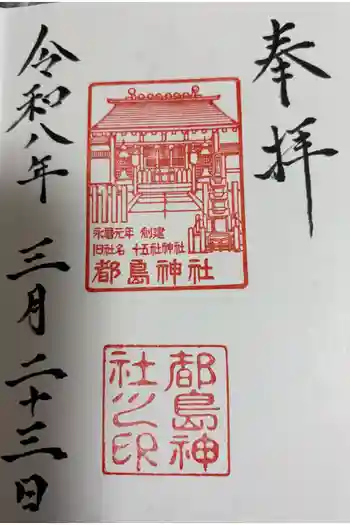 奉拝
永暦元年 創建
旧社名 十五社神社
都島神社
都島神
社之印
令和八年 三月二十三日